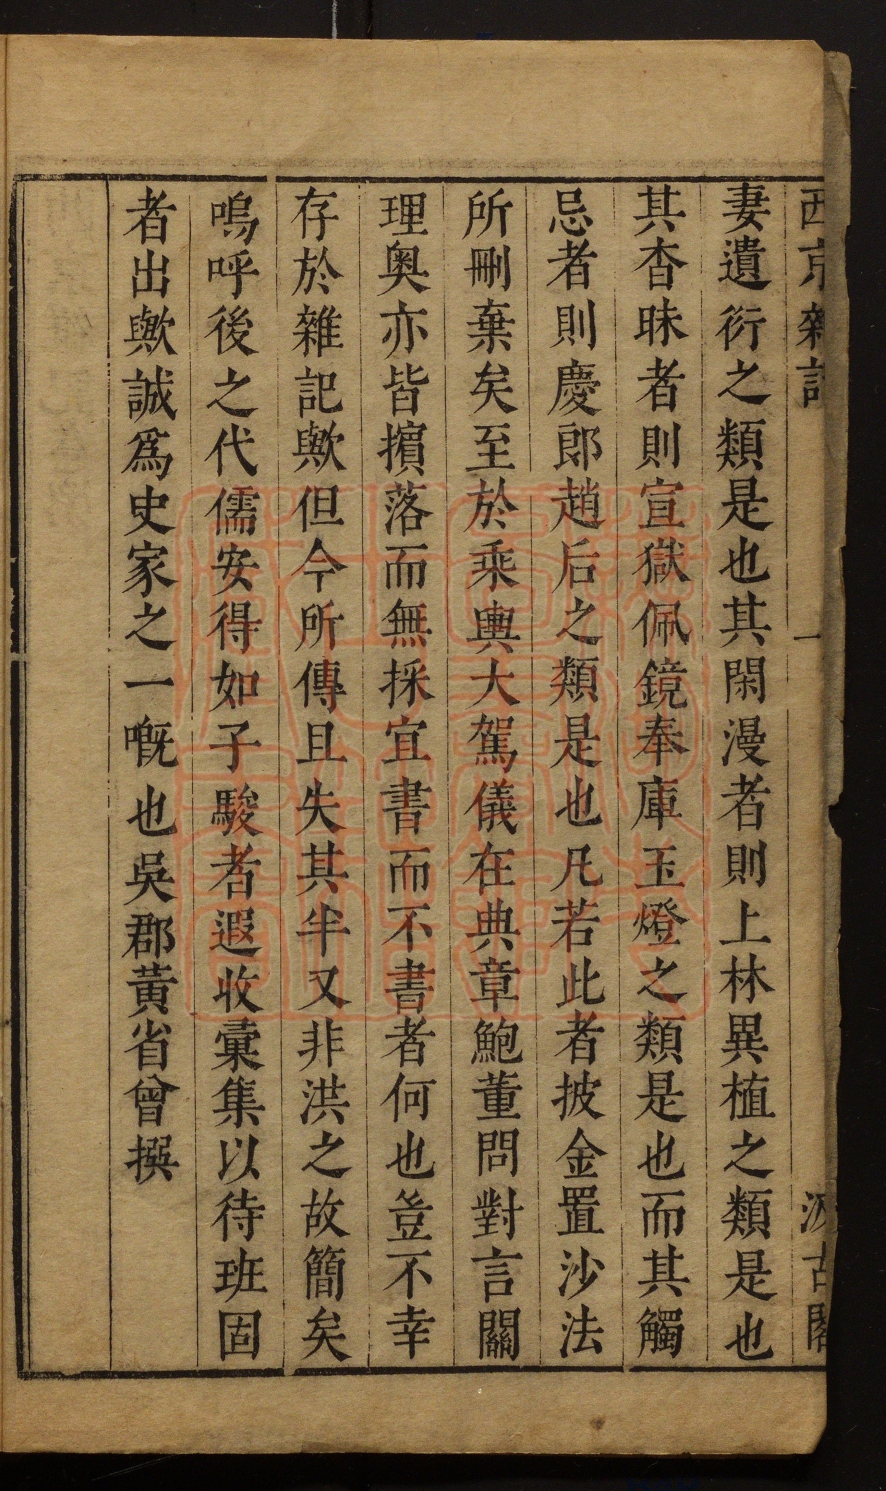 西京雜記 一 汲古閣
妻遺衍之類是也其閑漫者則上林異植之類是也
其杳昧者則宣獄佩鏡奉庫玉燈之類是也而其觸
忌者則慶郎趙后之類是也凡若此者披金置沙法
所刪棄矣至於乘輿大駕儀在典章鮑董問對言關
理奧亦皆擯落而無採宜書而不書者何也豈不幸
存於雜記歟但今所傳且失其半又非洪之故簡矣
嗚呼後之代儒安得如子駿者遐收彙集以待班固
者出歟誠爲史家之一嘅也吳郡黃省曾撰